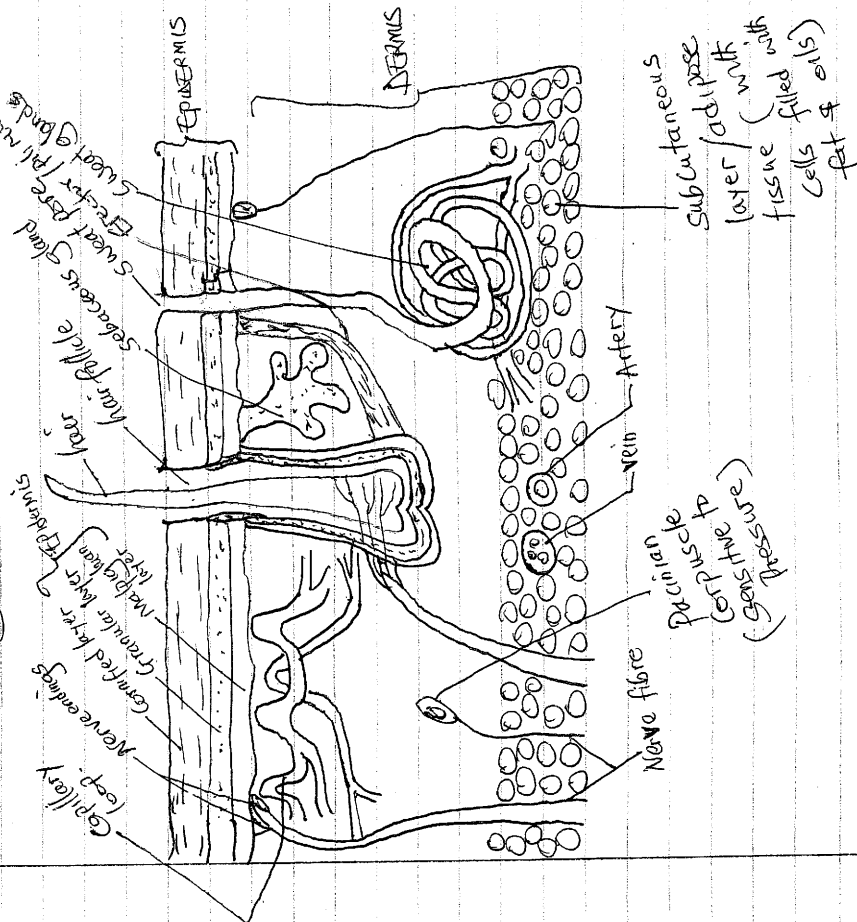 Capillary
loop.
Nerve endings
Cornified layer
Granular layer
Malpighian
layer
Epidermis
hair
hair follicle
Sebaceous gland
Sweat pore
Erector/pili
Sweat glands
EPIDERMIS
DERMIS
Subcutaneous
layer/adipose
tissue (with
cells filled with
fat & oils)
Artery
Vein
Pacinian
corpuscle
(sensitive to
pressure)
Nerve fibre